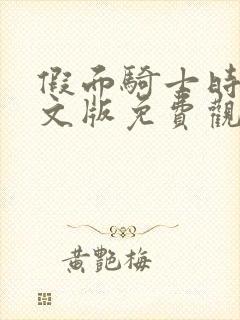 假面騎士時
文版免費觀
黃艷梅